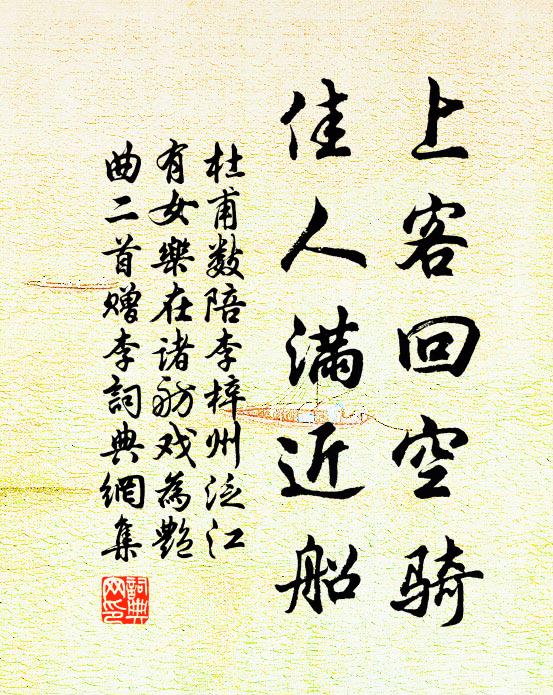 上客回空骑
佳人满近船
杜甫数陪李梓州泛江
有女樂在诸舫戏為艷
曲二首赠李詞典網集
詞典